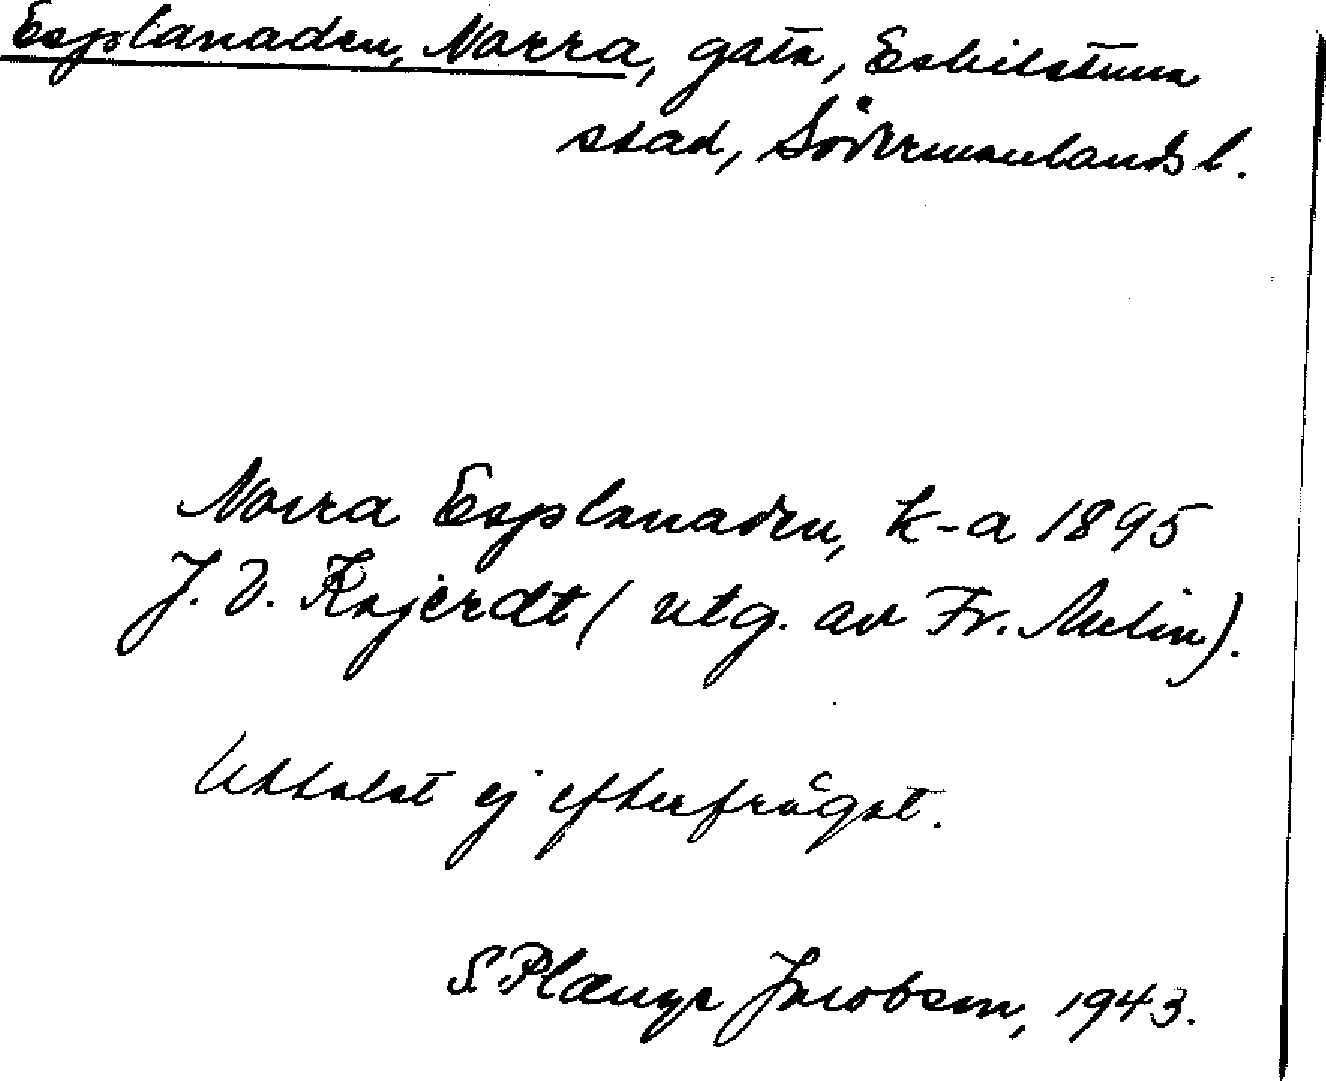 Esplanaden, Norra, gata, Eskilstuna
stad, Södermanlands l.
Norra Esplanaden, k-a 1895
J. V. (utg. av Fr. Melin).
Uttalat ej efterfrågat.
S. Plænge Jacobson, 1943.